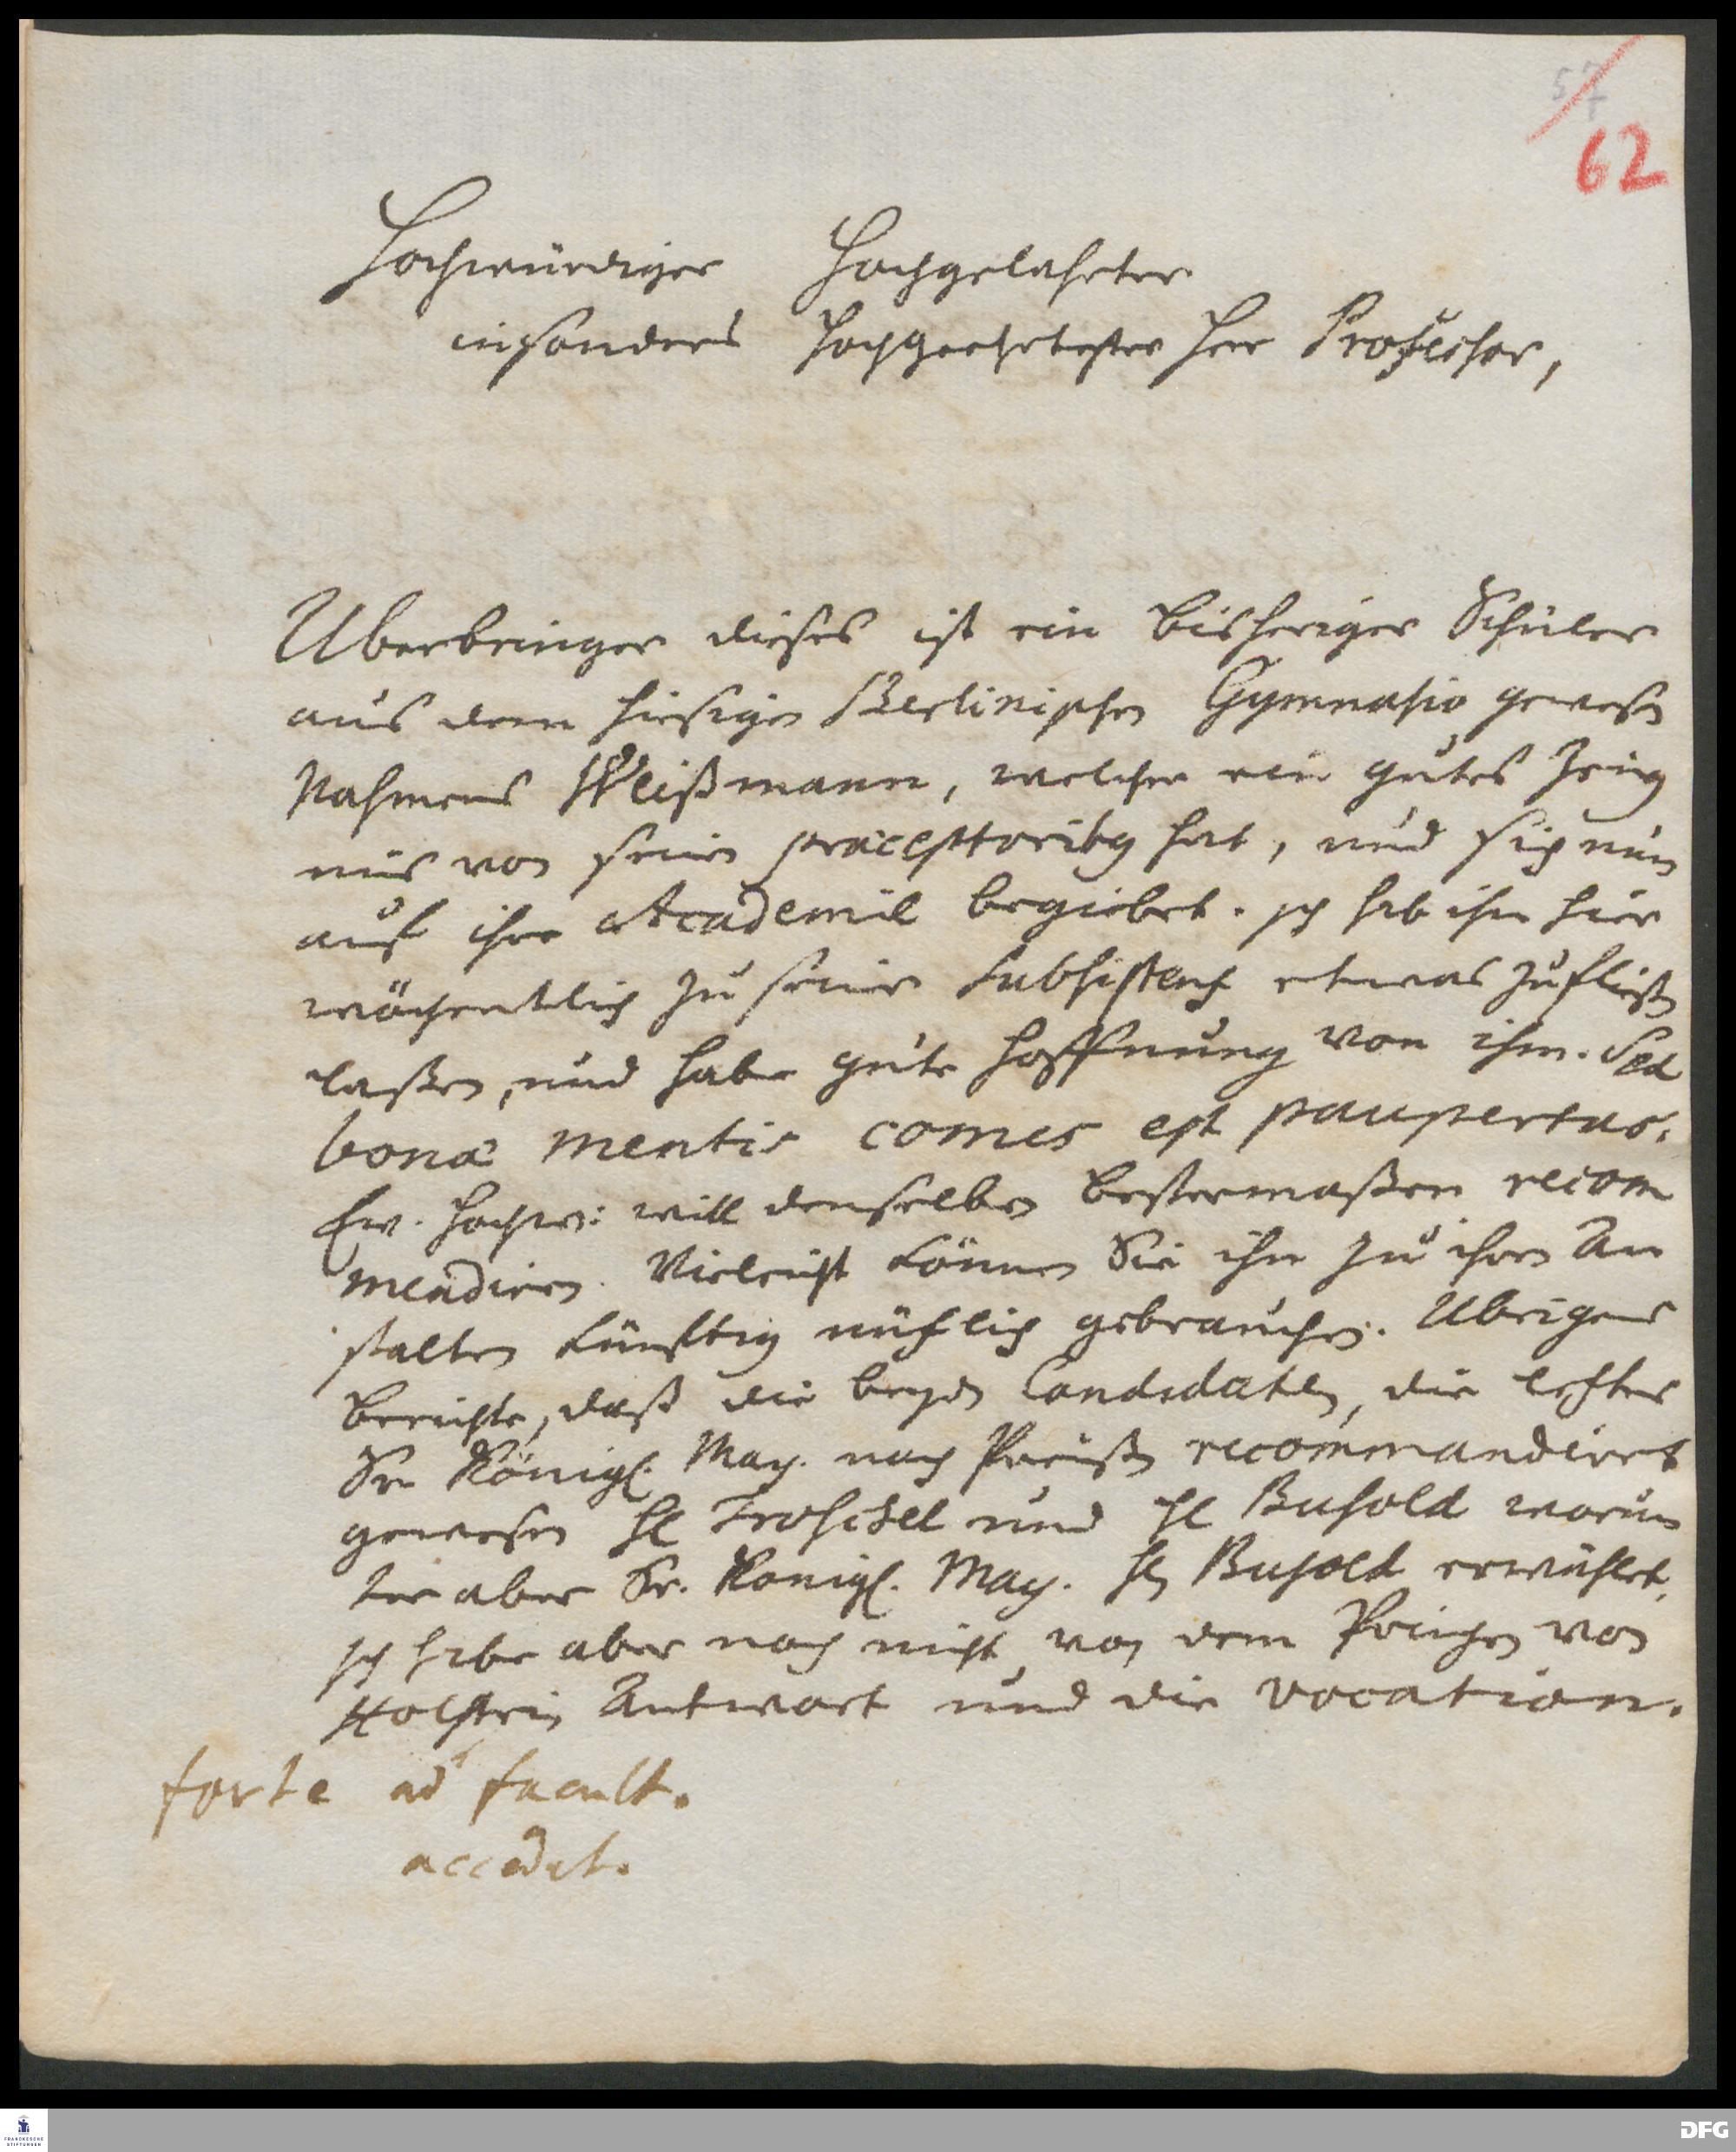 57
62
Hochwürdiger Hochgelahrter
insonders Hochgeehrtester Herr Professor,
Uberbringer dieses ist ein bisheriger Schüler
aus dem hiesigen Berlinischen Gymnasio gewesen
Nahmens Weißmann, welcher ein gutes Zeug
niß von seinen praeceptoribus hat, und sich nun
auf ihre Academie begiebet. Ich hab ihm hier
wöchentlich zu seiner Subsistentz etwas zufließen
laßen, und habe gute Hoffnung von ihm. Sed
bonae mentis comes est paupertas.
Ew. Hochw: will denselben bestermaßen recom
mendiren. Vieleicht können Sie ihn zu ihren An
stalten künfftig nützlich gebrauchen. Ubrigens
berichte, daß die beyden Candidaten, die letztens
Sr. Königl. May. nach Preußen recommandiret
gewesen H Troschel und H Busold worun
ter aber Sr. Königl. May. Hn Busold erwählet,
Ich habe aber noch nicht von dem Printzen von
Holstein Antwort und die vocation.
forte ad facult.
accedet.
FRANCKESCHE
STIFTUNGEN
DFG